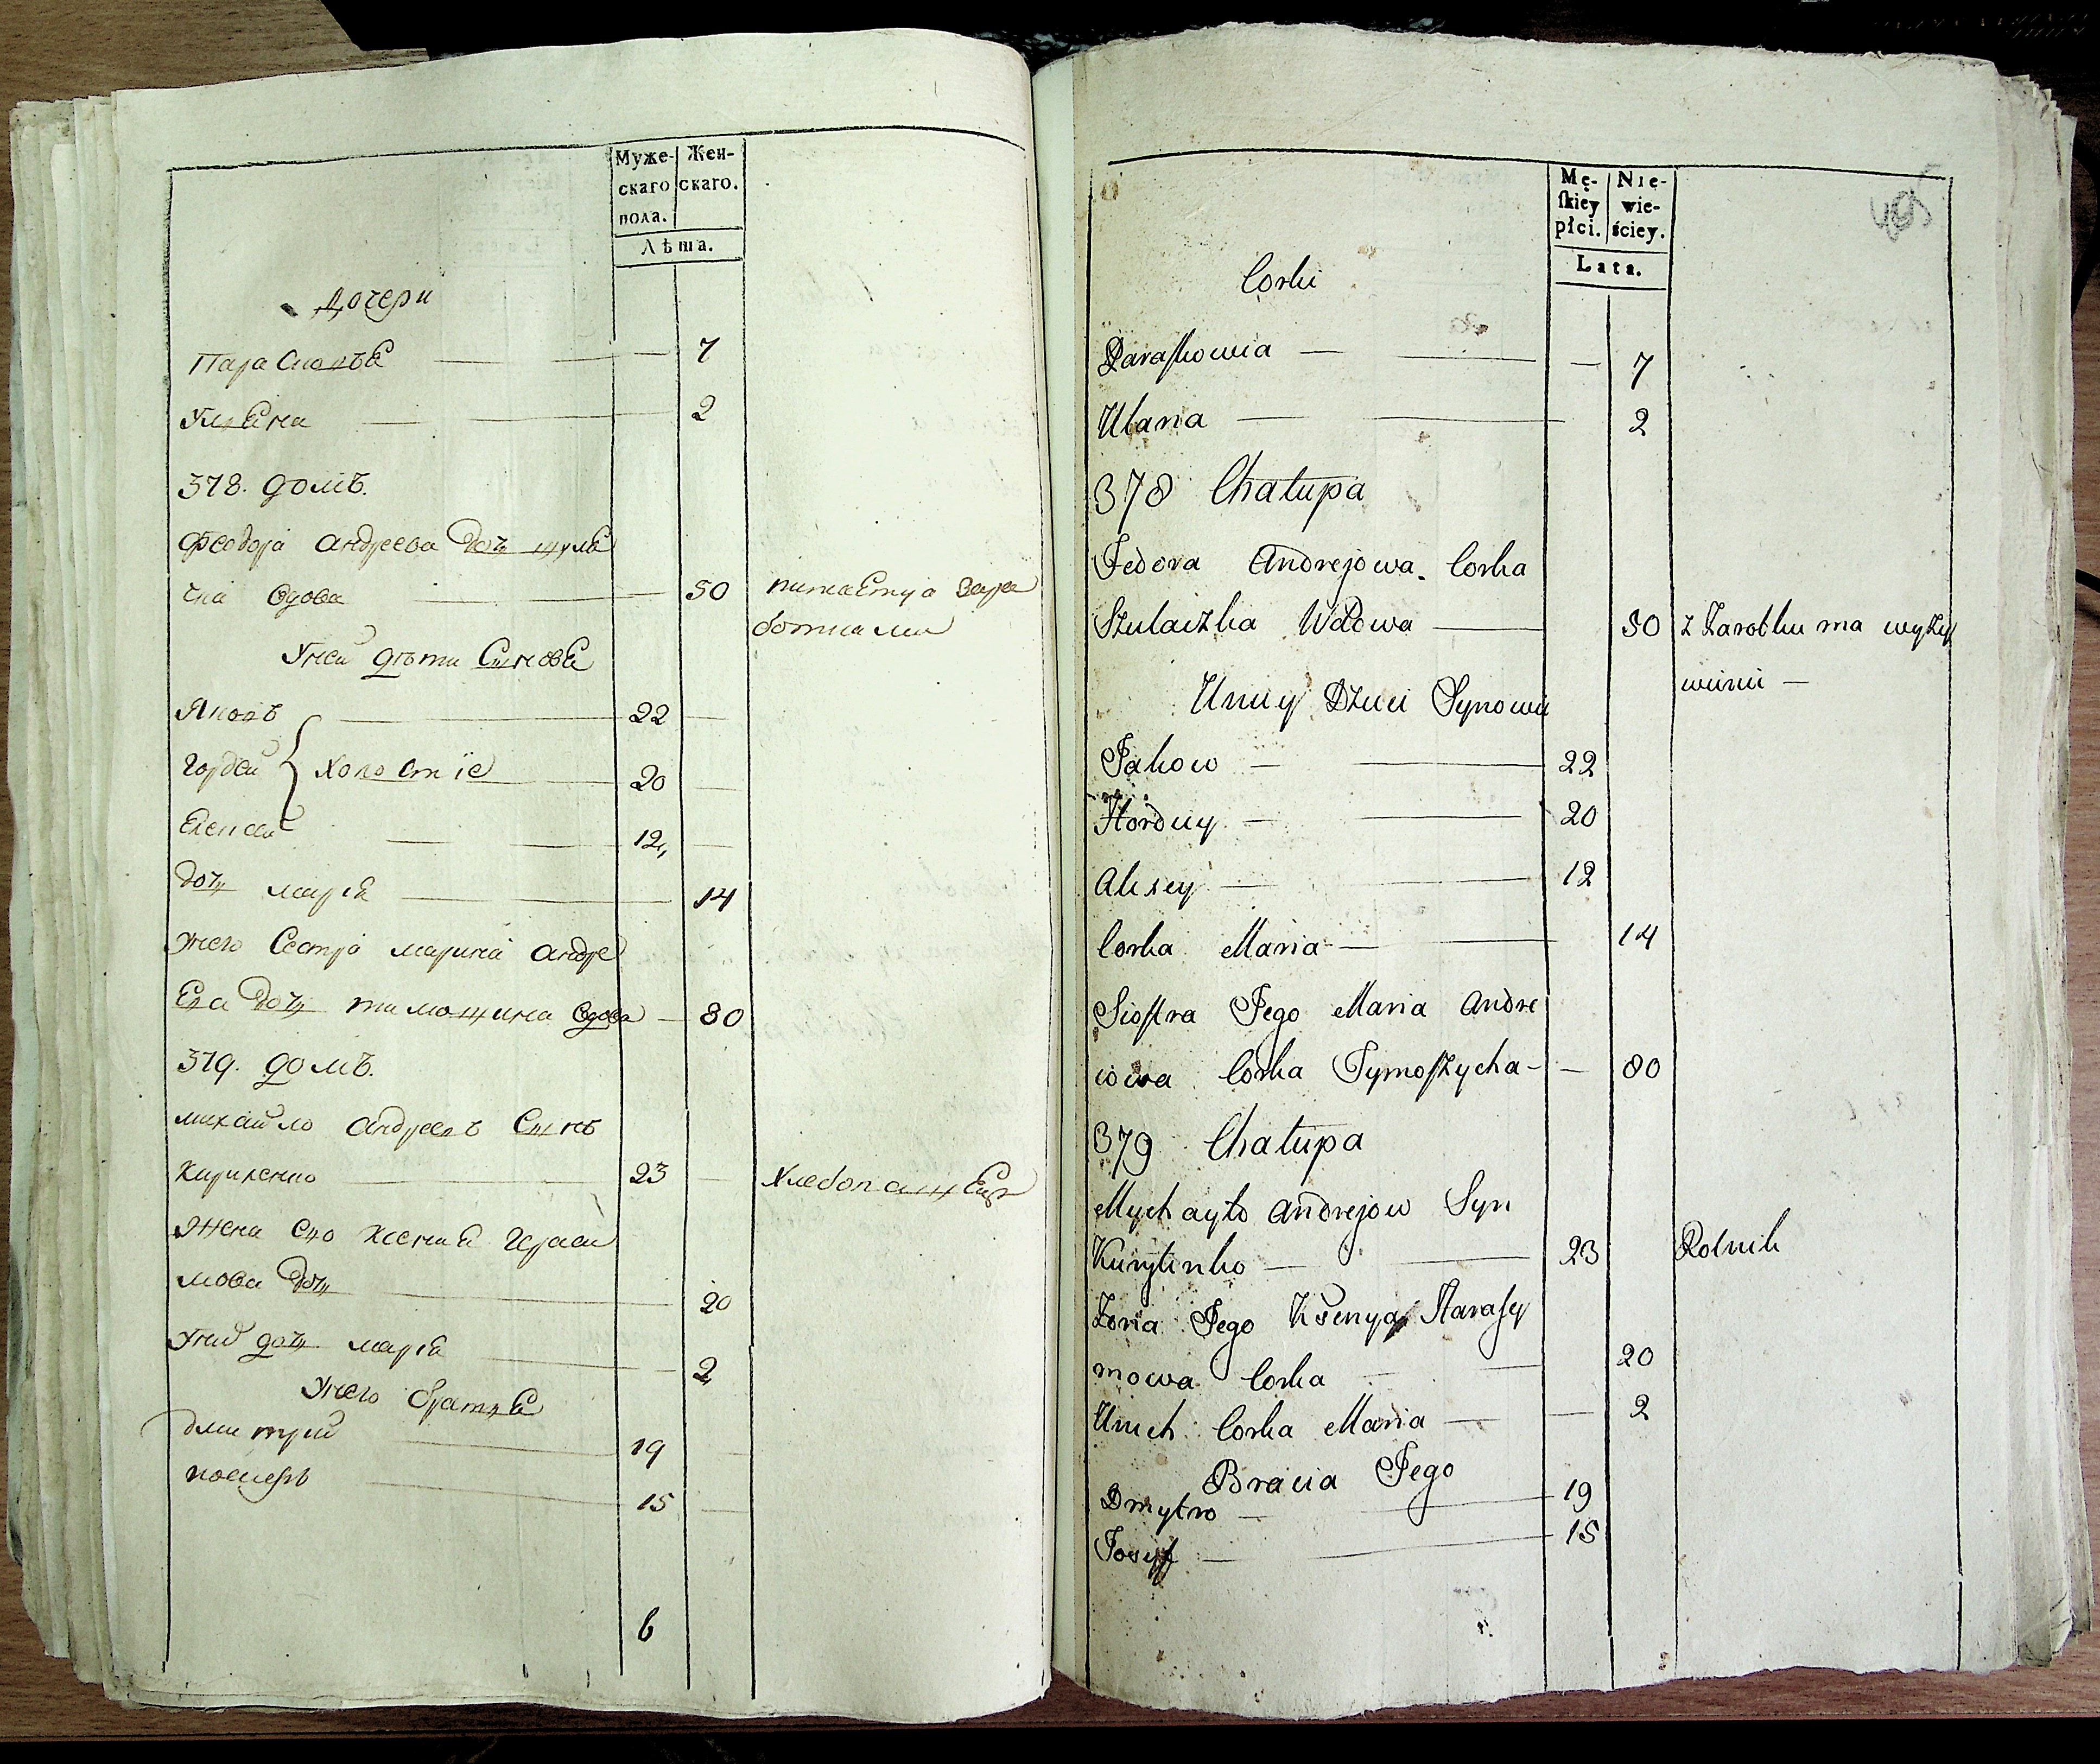 Муже-
скаго
пола.
Жен-
скаго.
Лѣта.
Дочери
Парасковѣя 7
Уляна 2
378. домъ.
Феодора Андреева дочь шуля
чка вдова 50 питается зара
ботками
У нея дѣти Синовя
Яковъ 22
Гордей холостіе 20
Елексей 12
дочь марія 14
У него Сестра марина Андре
ева дочь тимошиха вдова 80
379. домъ.
михайло Андреевъ Синъ
Кириленко 23 Хлебопашецъ
Жена его Ксения Гераси
мова дочь 20
У них дочь марія 2
У него братья
дмитрий 19
15
6
Mę-
skiey
płci.
Nie-
wie-
ściey.
Lata.
Corki
Paraskowia 7
Ulana 2
378 Chałupa
Fedora Andrejowa Corka
Szulaczka Wdowa 50 z Zarobku ma wyży
wieni
U niey Dzieci Synowie
Jakow 22
Hordiey 20
Alexey 12
Corka Maria 14
Siostra Jego Maria Andre
iowa Corka Tymoszycha 80
379 Chałupa
Mychayło Andrejow Syn
Kuryłenko 23 Rolnik
Żona Jego Ksenya Harasy
mowa Corka 20
U nich Corka Maria 2
Bracia Jego
Dmytro 19
Josyf 15